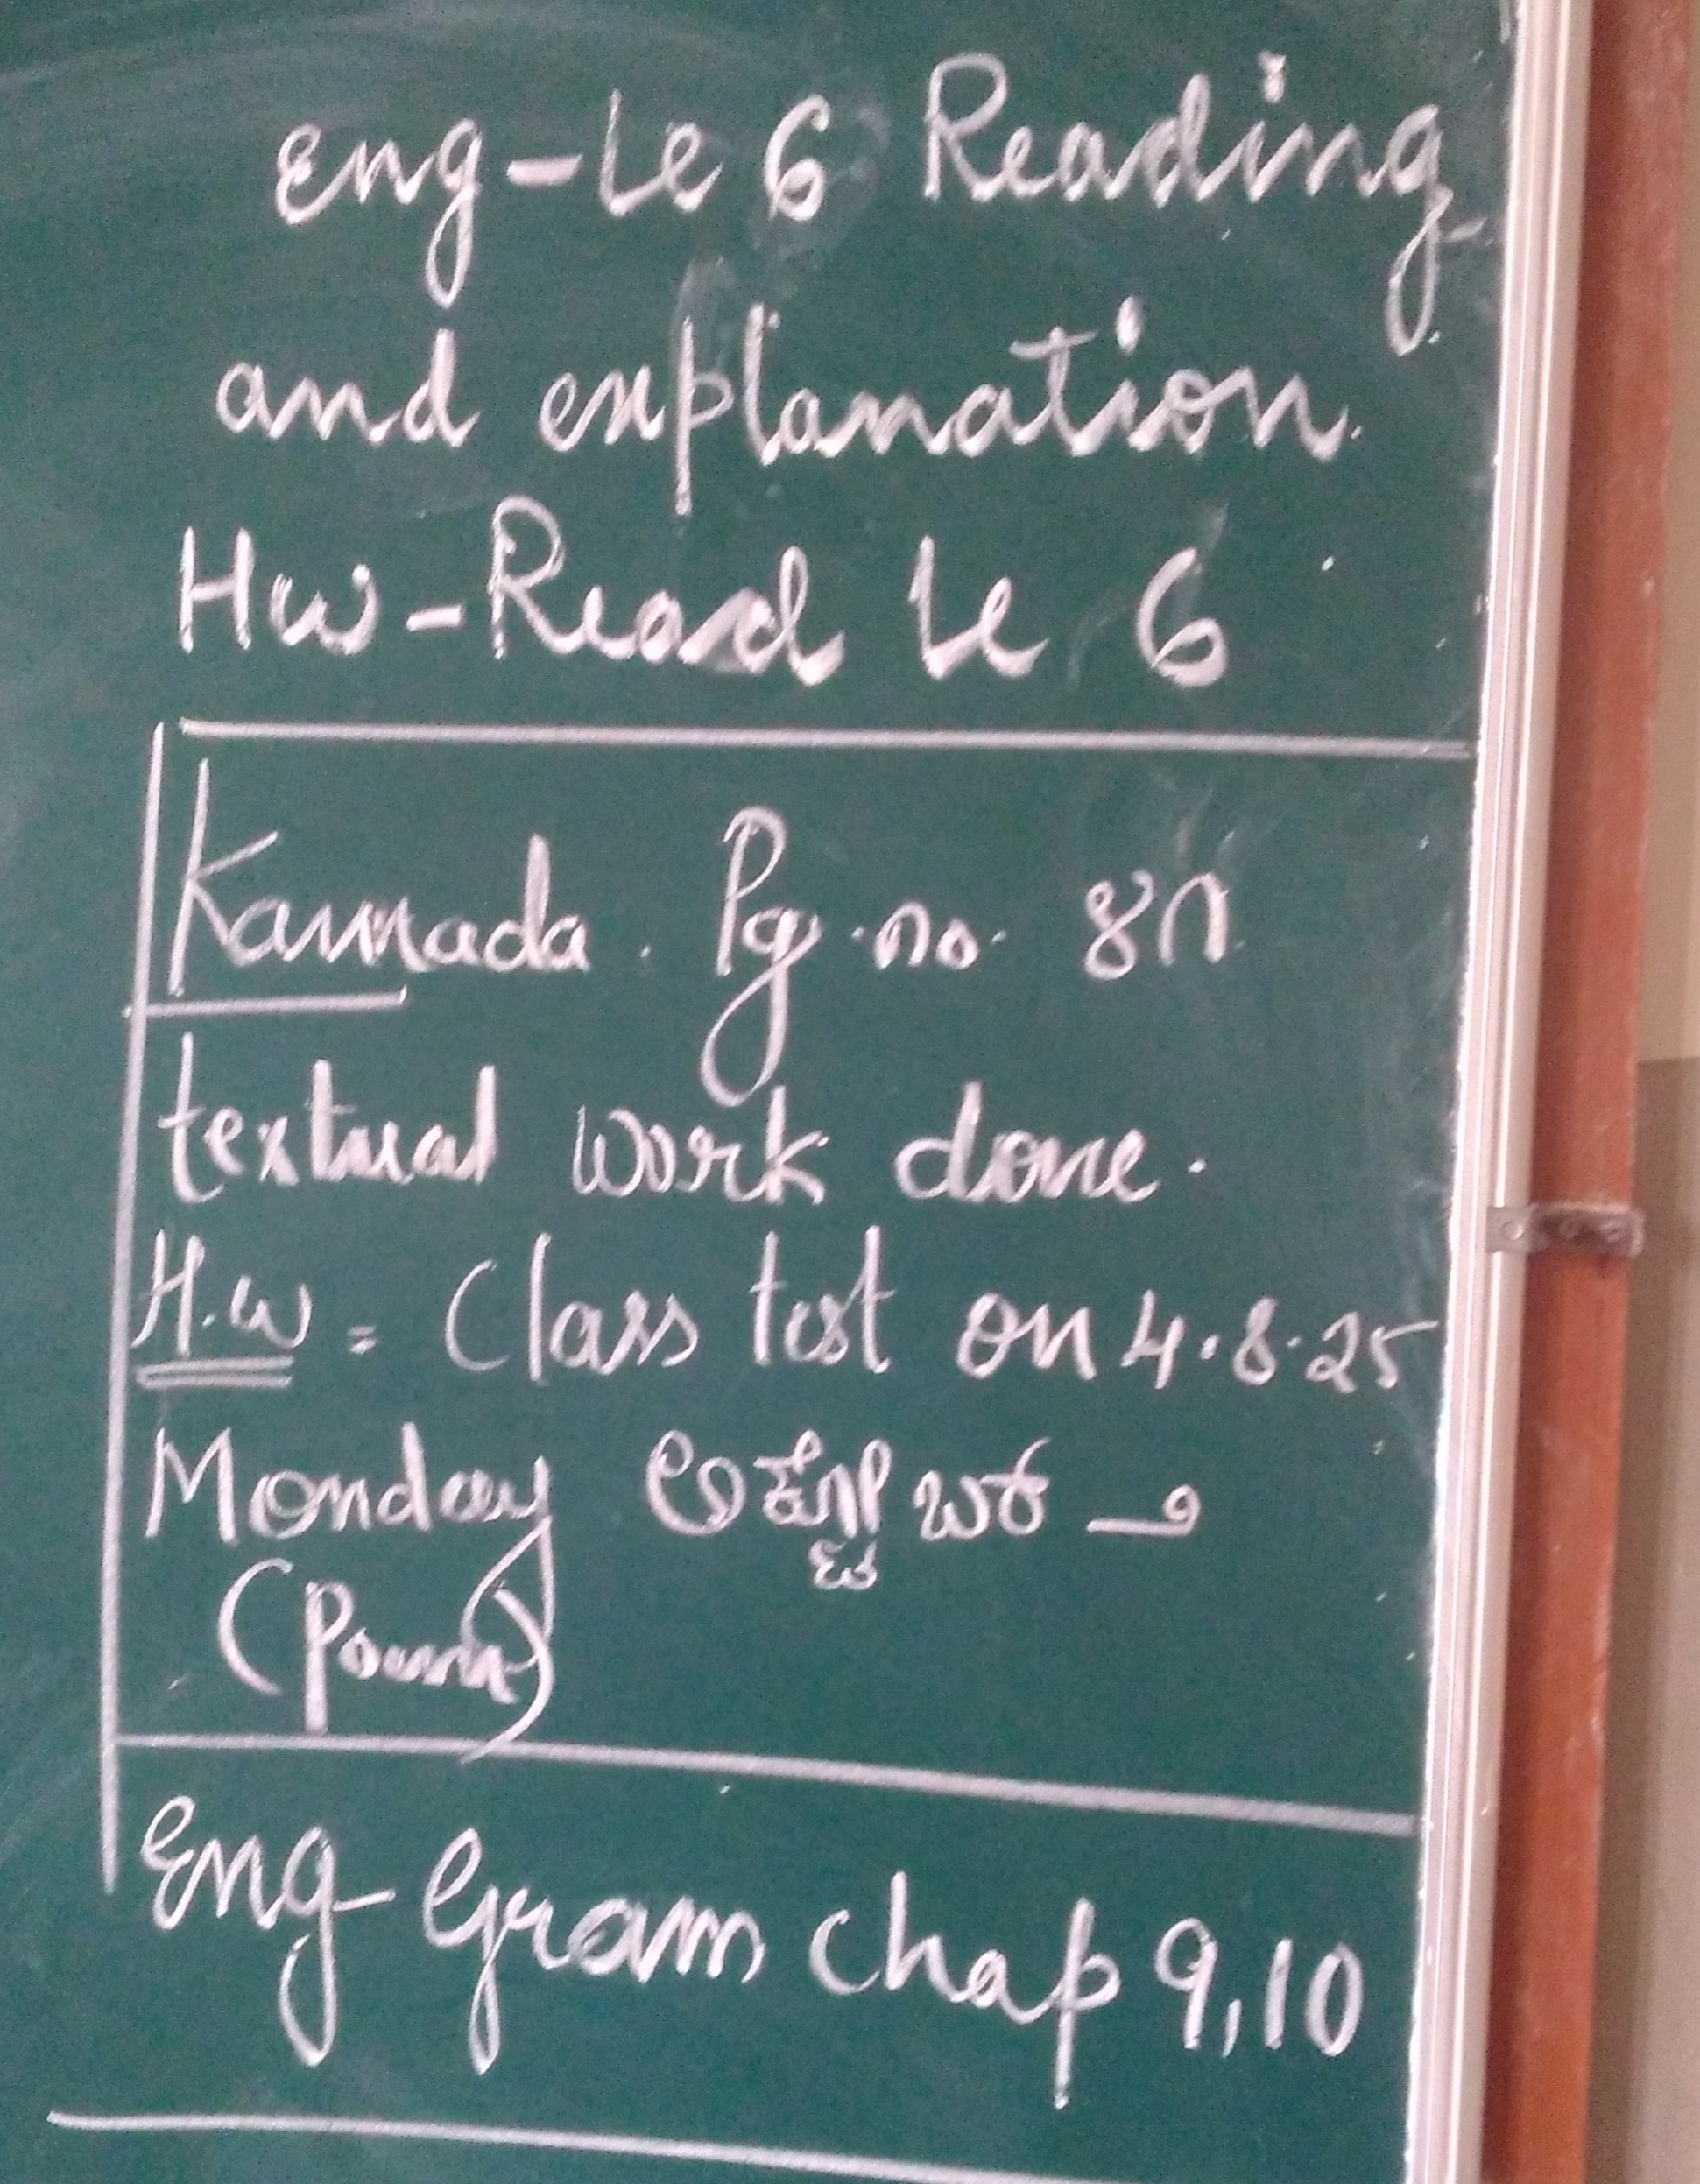 Eng-Le 6 Reading
and explanation.
Hw-Read Le 6
Kannada. Pg.no. ೪೧
textual work done.
H.W = Class test on 4.8.25
Monday ಅಕ್ಟೋಬರ್ -೨
(Poem)
Eng Gram chap 9,10